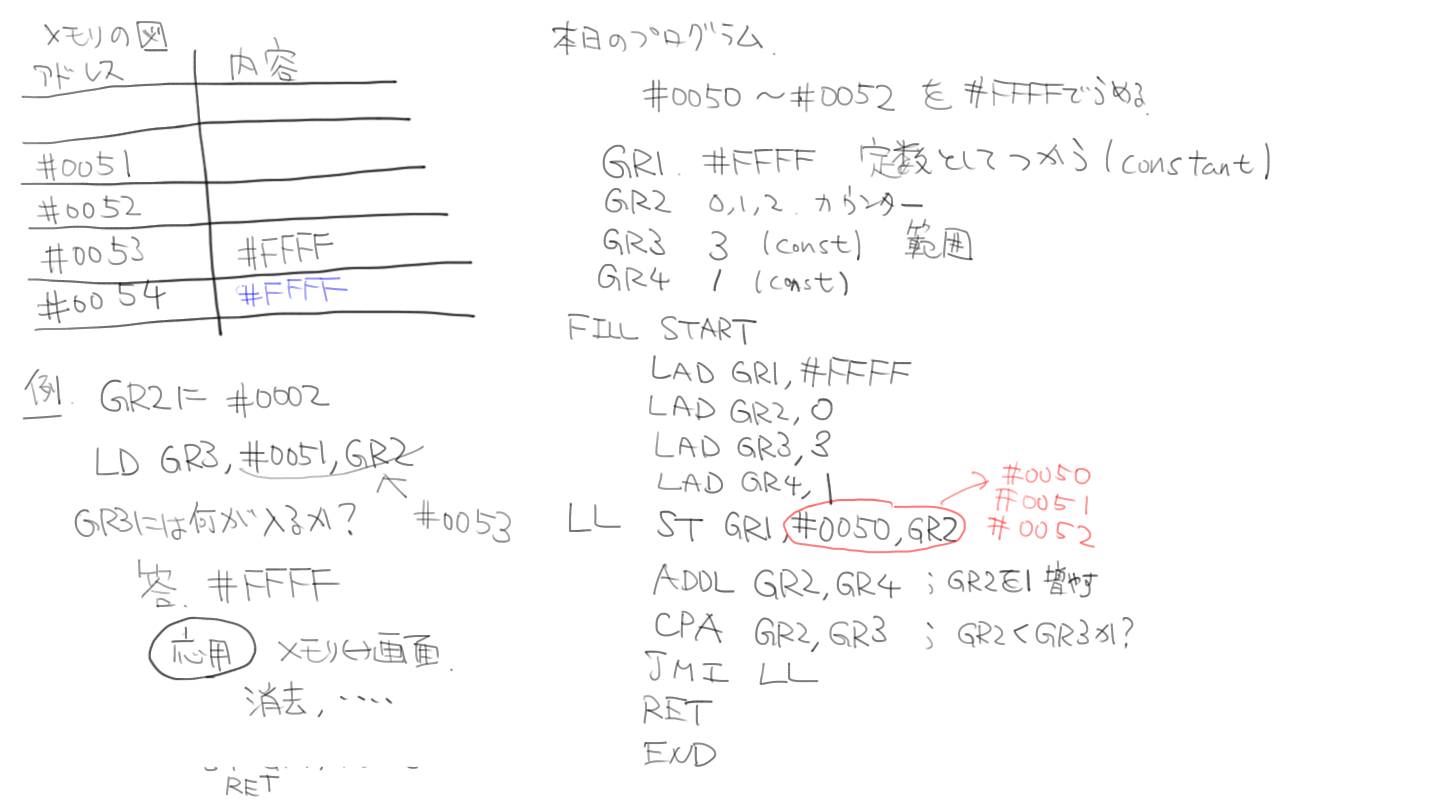 メモリの図
アドレス 内容
#0051
#0052
#0053 #FFFF
#0054 #FFFF
例. GR2に #0002
LD GR3, #0051, GR2
GR3には何が入るか? #0053
答. #FFFF
応用 メモリ↔画面.
消去, ‥‥
RET
本日のプログラム.
#0050 〜 #0052 を #FFFFでうめる.
GR1. #FFFF 定数としてつかう (constant)
GR2 0,1,2. カウンター
GR3 3 (const) 範囲
GR4 1 (const)
FILL START
LAD GR1, #FFFF
LAD GR2, 0
LAD GR3, 3
LAD GR4, 1
LL ST GR1, #0050, GR2
#0050
#0051
#0052
ADDL GR2, GR4 ; GR2を1増やす
CPA GR2, GR3 ; GR2<GR3か?
JMI LL
RET
END